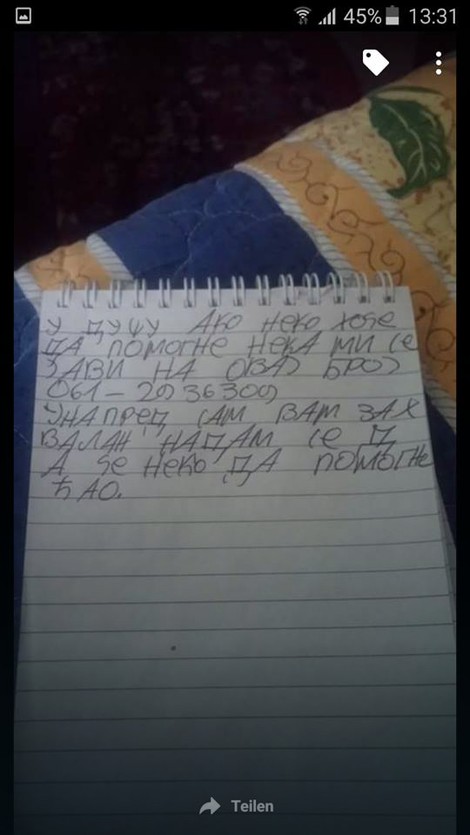 45% 13:31
У АКО НЕКО ХОЋЕ
ДА ПОМОГНЕ НЕКА МИ СЕ
ЈАВИ НА ОВАЈ БРОЈ
061 – 2936309
УНАПРЕД САМ ВАМ ЗАХ
ВАЛАН НАДАМ СЕ Д
А ЋЕ НЕКО ДА ПОМОГНЕ
ЋАО.
Teilen